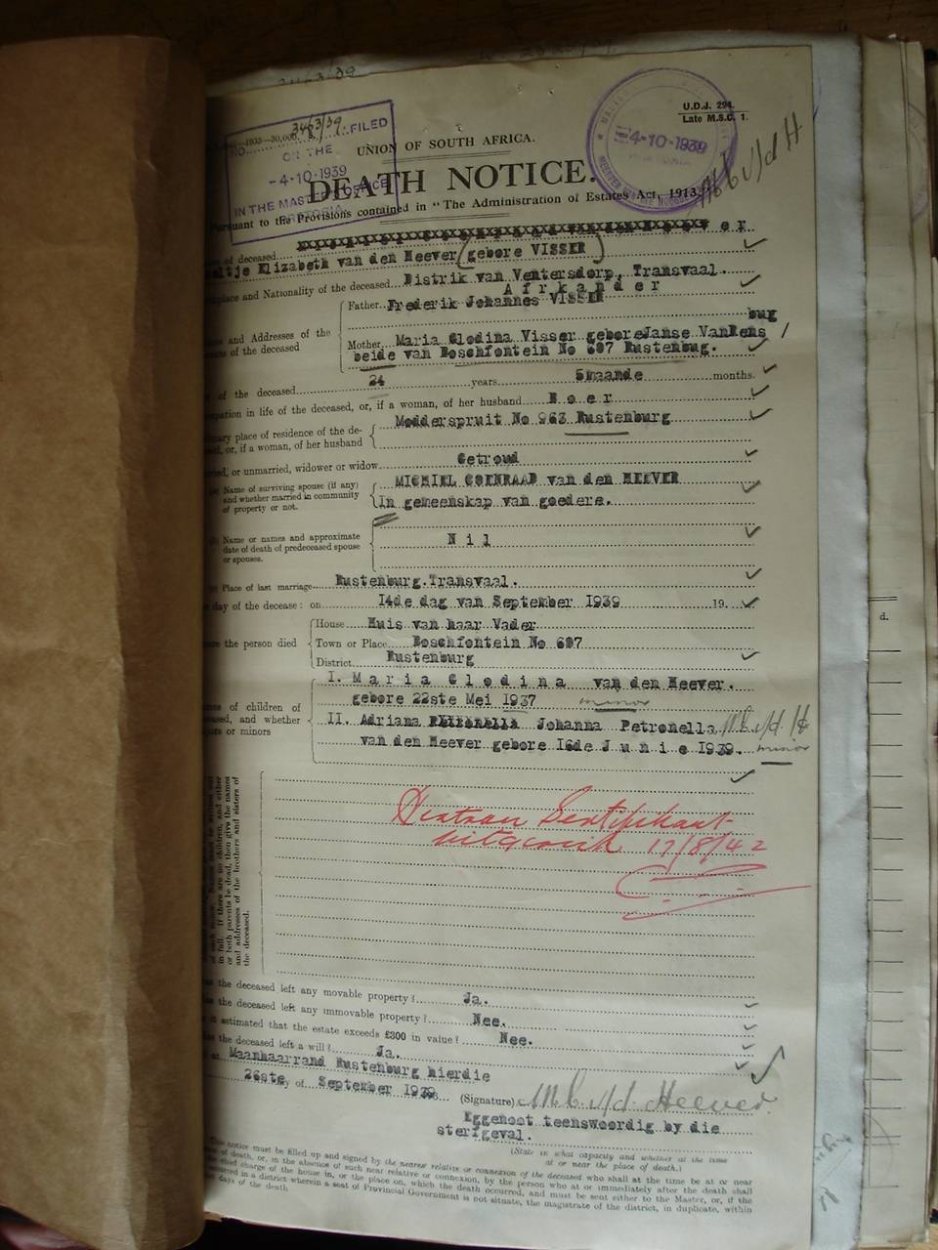 3463/39
FILED
ON THE
-4-10-1939
IN THE MASTER'S OFFICE
PRETORIA
U.D.J. 294.
Late M.S.C. 1.
-4-10-1939
UNION OF SOUTH AFRICA.
DEATH NOTICE.
Pursuant to the Provisions contained in "The Administration of Estates Act, 1913."
of deceased
Elizabeth van den Heever (gebore VISSER)
place and Nationality of the deceased Distrik van Ventersdorp, Transvaal.
Afrikander
Father Frederik Johannes VISSER
and Addresses of the
of the deceased
Mother Maria Clodina Visser gebore Janse Van Rens
bug
beide van Boschfontein No 697 Rustenbug.
of the deceased 24 years 5maande months.
in life of the deceased, or, if a woman, of her husband Boer
place of residence of the de-
or, if a woman, of her husband
Modderspruit No 963 Rustenburg
or unmarried, widower or widow Getroud
Name of surviving spouse (if any)
and whether married in community
of property or not.
MICHIEL COENRAAD van den HEEVER
In gemeenskap van goedere.
Name or names and approximate
date of death of predeceased spouse
or spouses.
Nil
Place of last marriage Rustenburg.Transvaal.
day of the decease: on 14de dag van September 1939 19
the person died
House Huis van haar Vader
Town or Place Boschfontein No 697
District Rustenburg
of children of
and whether
or minors
I. Maria Clodina van den Heever.
gebore 22ste Mei 1937 minor
II. Adriana Johanna Petronella M.C. v/d. H
van den Heever gebore 16de Junie 1939. minor
in full. If there are no children, and either
or both parents be dead, then give the names
and addresses of the brothers and sisters of
the deceased.
Sertifikaat
uitgereik 17/8/42
the deceased left any movable property? Ja.
the deceased left any immovable property? Nee.
estimated that the estate exceeds £300 in value? Nee.
the deceased left a will? Ja.
Maanhaarrand Rustenburg hierdie
26ste of September 1939
(Signature) M C v/d. Heever
Eggenoot teenswoordig by die
sterfgeval.
(State in what capacity and whether at the time
at or near the place of death.)
notice must be filled up and signed by the nearest relative or connexion of the deceased who shall at the time be at or near
of death, or, in the absence of such near relative or connexion, by the person who at or immediately after the death shall
charge of the house in, or the place on, which the death occurred, and must be sent either to the Master, or, if the
in a district wherein a seat of Provincial Government is not situate, the magistrate of the district, in duplicate, within
days of the death
d.